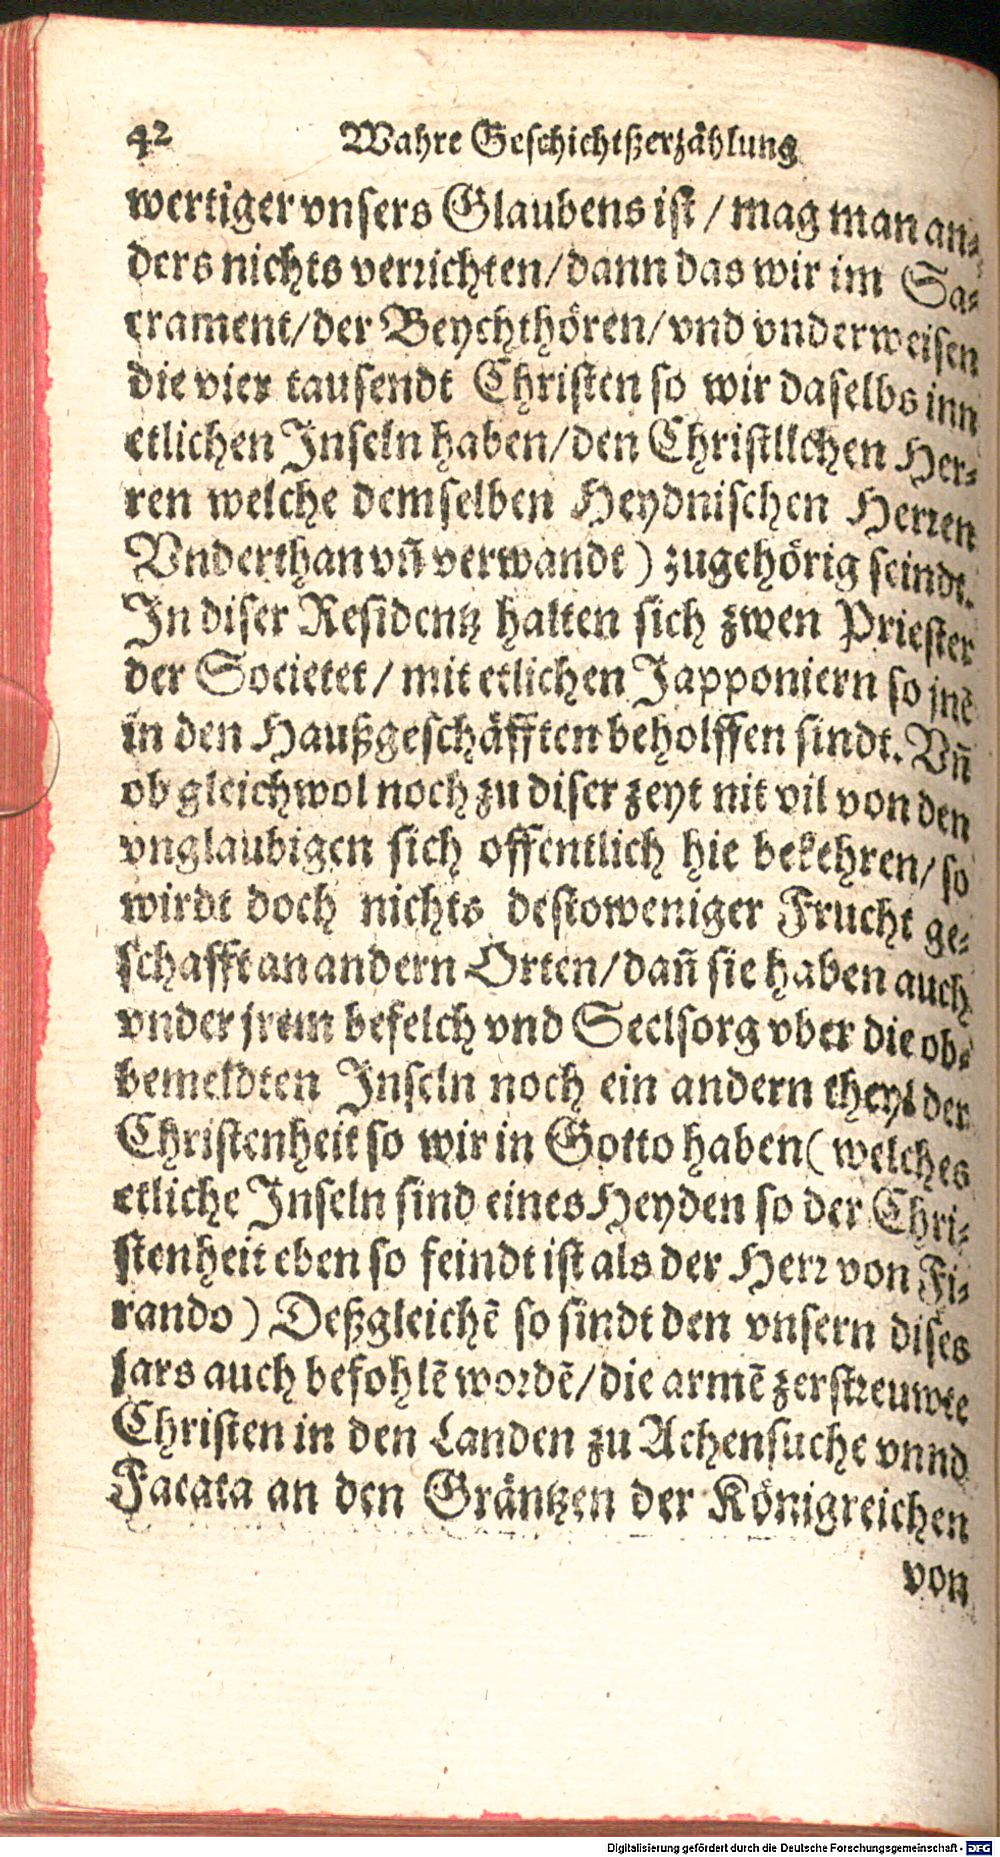 42 Wahre Geschichtßerzählung
wertiger vnsers Glaubens ist / mag man an-
ders nichts verrichten/dann das wir im Sa-
crament/der Beychthören/vnd vnderweisen
die vier tausendt Christen so wir daselbs inn
etlichen Inseln haben/den Christlichen Her-
ren welche demselben Heydnischen Herren
Vnderthan vñ verwandt) zugehörig seindt.
In diser Residentz halten sich zwen Priester
der Societet / mit etlichen Japponiern so jnē
in den Haußgeschäfften beholffen sindt. Vñ
ob gleichwol noch zu diser zeyt nit vil von den
vnglaubigen sich offentlich hie bekehren/ so
wirdt doch nichts destoweniger Frucht ge-
schafft an andern Orten/dañ sie haben auch
vnder jrem befelch vnd Seelsorg vber die ob-
bemeldten Inseln noch ein andern theyl der
Christenheit so wir in Gotto haben( welches
etliche Inseln sind eines Heyden so der Chri-
stenheit eben so feindt ist als der Herr von Fi-
rando) Deßgleichē so sindt den vnsern dises
Jars auch befohlē wordē/die armē zerstreuwte
Christen in den Landen zu Achensuche vnnd
Facata an den Gräntzen der Königreichen
von
Digitalisierung gefördert durch die Deutsche Forschungsgemeinschaft - DFG